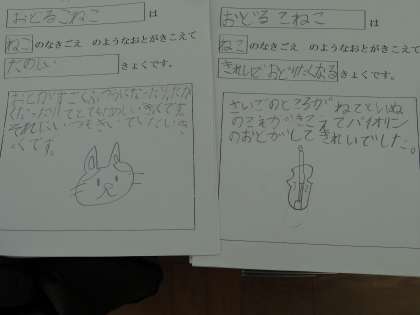 おどるこねこ は
ねこ のなきごえ のようなおとがきこえて
たのしい きょくです。
おとがすごくふつうになったり、たか
くなったりしてとてもたのしいきょくです。
それにいつもきいていたいきょ
くです。
おどるこねこ は
ねこ のなきごえ のようなおとがきこえて
きれいで おどりたくなる きょくです。
さいごのところが ねことといぬ
のこえがきこえてバイオリン
のおとがしてきれいでした。